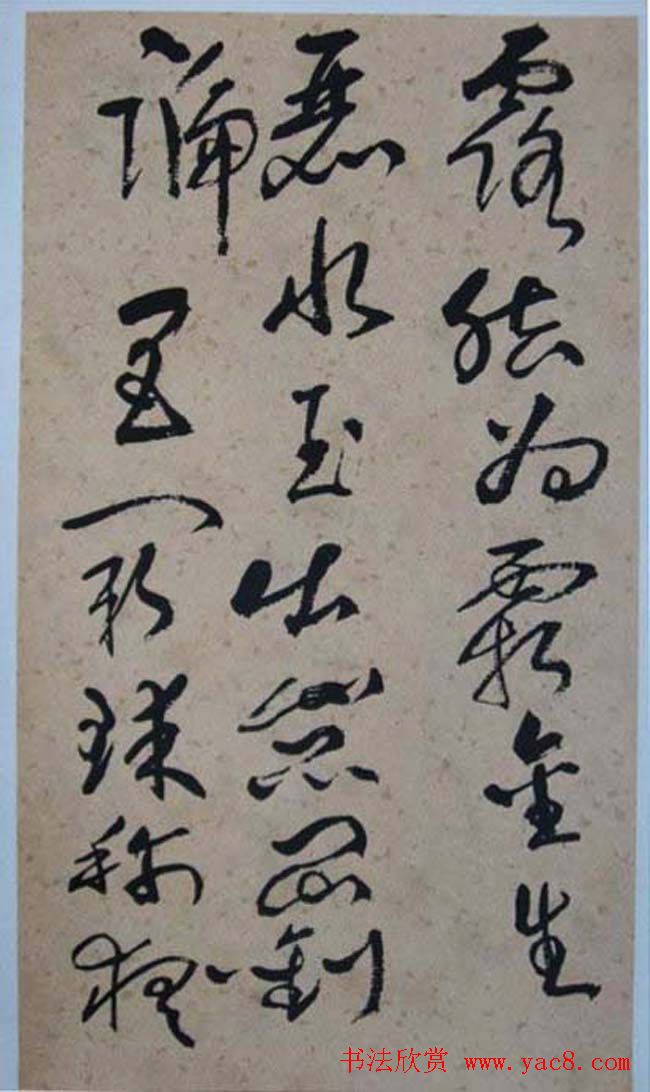 露結為霜金生
麗水玉出崑岡劍
號巨闕珠稱夜
书法欣赏 www.yac8.com